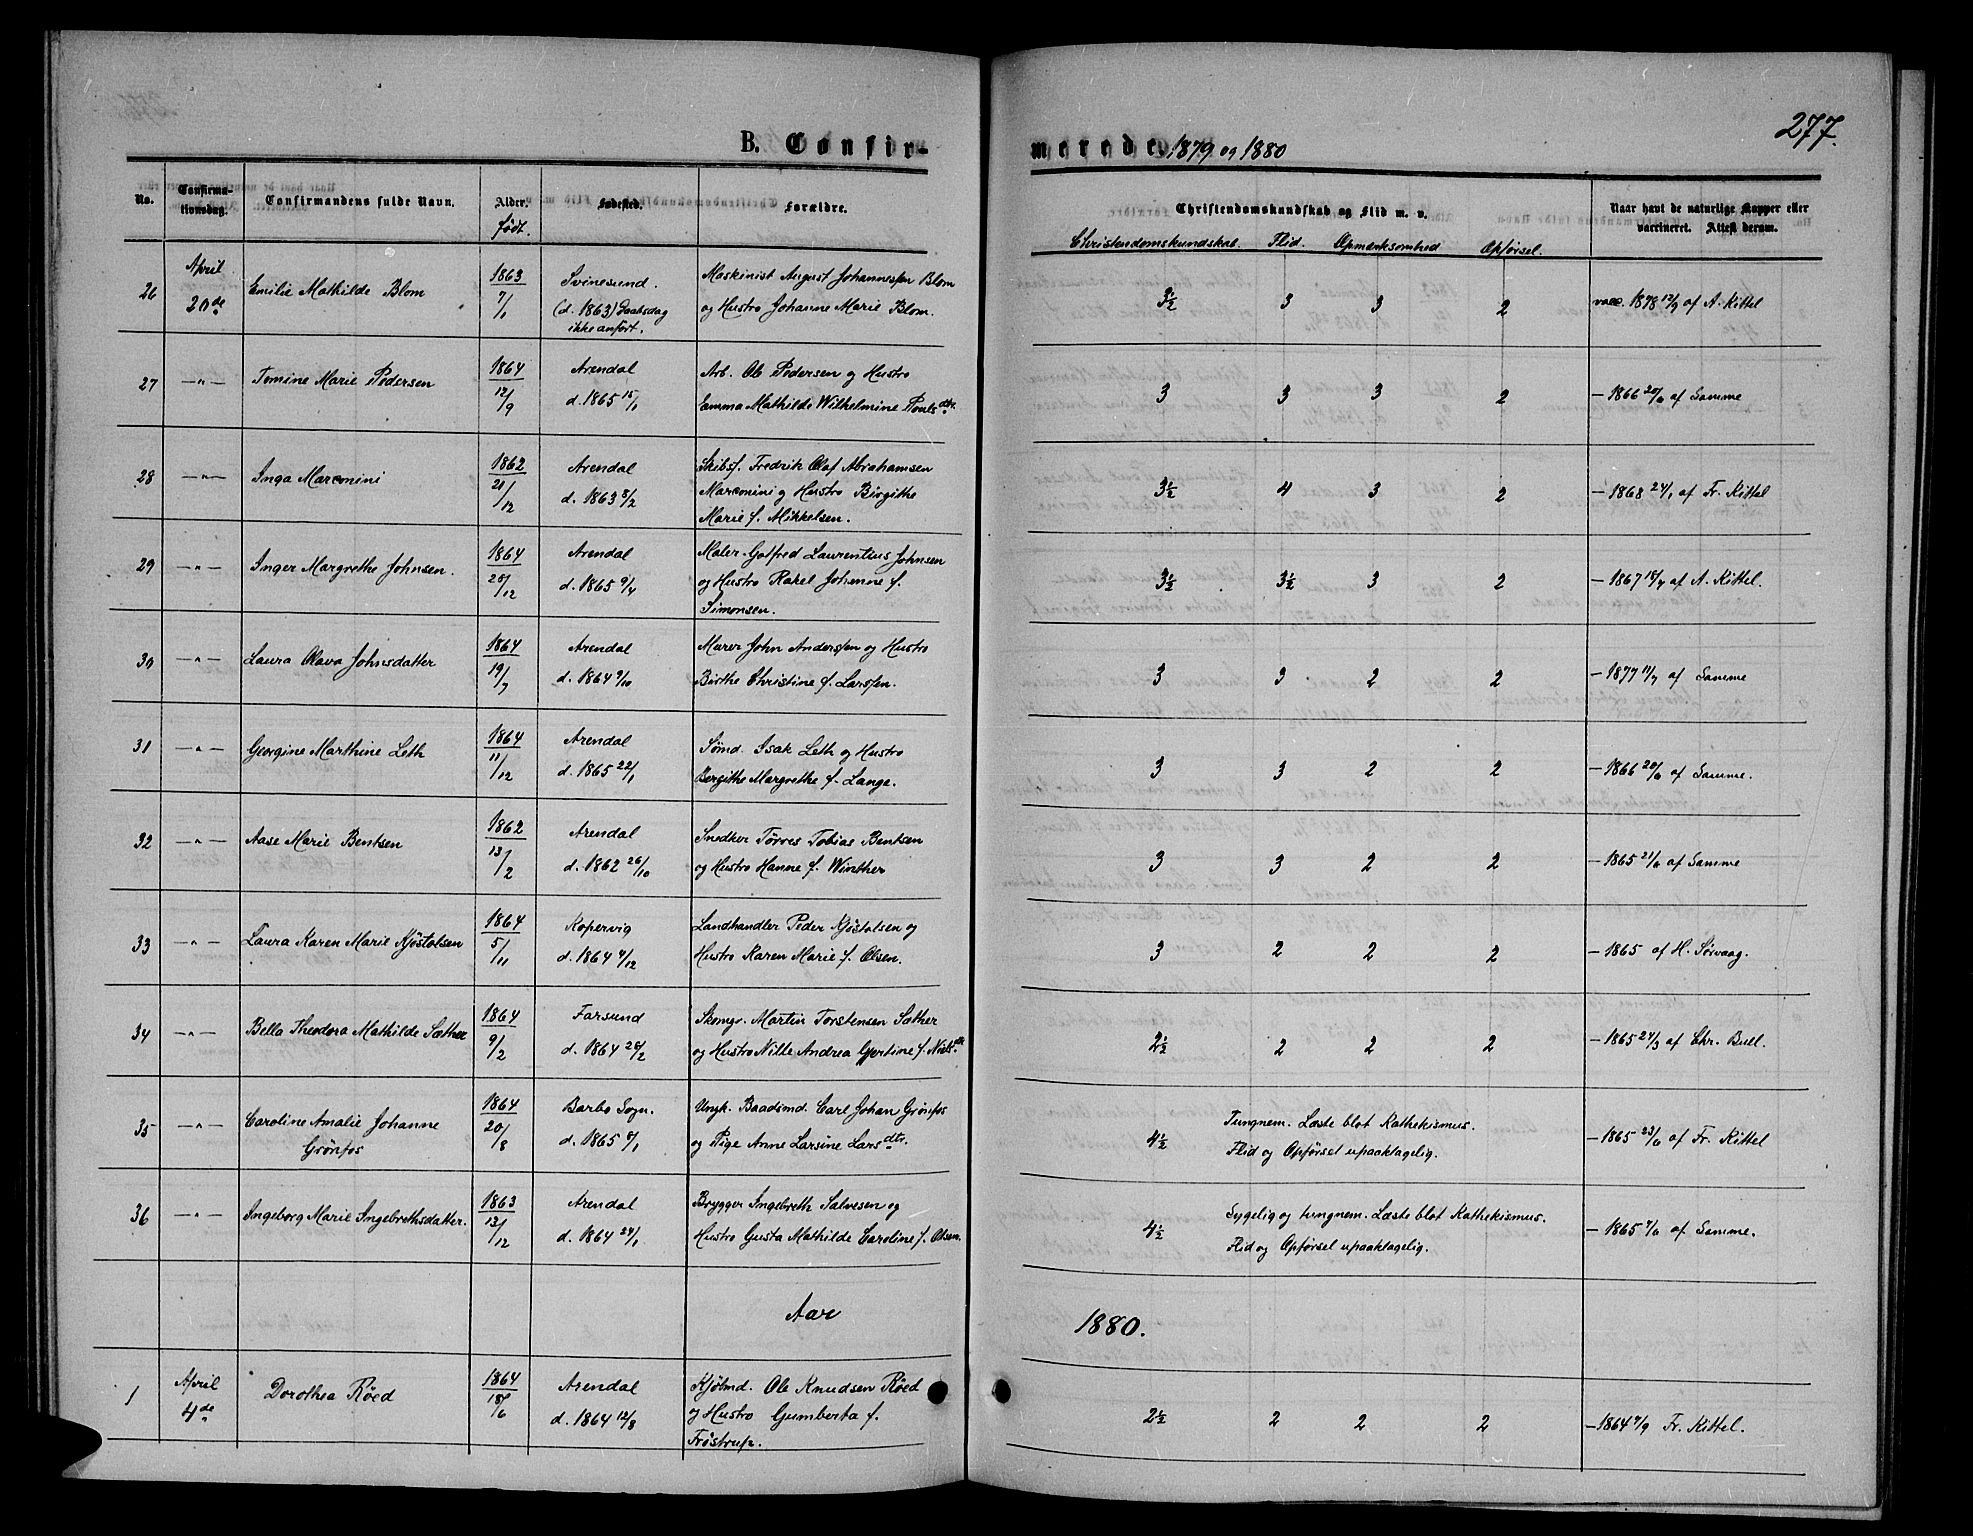 277.
B. Confir-
merede 1879 og 1880
No. Confirma-tionsdag. Confirmandens fulde Navn. Alder. født. Fødested. Forældre. Christendomskundskab og Flid m. v. Naar havt de naturlige Kopper eller vaccineret. Attest derom.
Christendomskundskab. Flid. Opmærksomhed Opførsel.
26 April 20de Emilie Mathilde Blom 1863 7/1 Svinesund. Maskinist August Johannesen Blom
(d. 1863) Daabsdag og Hustru Johanne Marie Blom. 3½ 3 3 2 vacc. 1878 12/9 af A. Kittel
ikke anført.
27 —"— Tomine Marie Pedersen 1864 12/9 Arendal Arb. Ole Pedersen og Hustro
d. 1865 15/1 Emma Mathilde Wilhelmine Pouls dtr. 3 3 3 2 — 1866 20/6 af Samme
28 —"— Inga Marcmini 1862 21/12 Arendal Skibsf. Fredrik Olaf Abrahamsen
d. 1863 8/2 Marcmini og Hustro Birgithe 3½ 4 3 2 — 1868 24/1 af Fr. Kittel
Marie f. Mikkelsen.
29 —"— Inger Margrethe Johnsen. 1864 28/12 Arendal Maler Gotfred Laurentius Johnsen
d. 1865 9/4 og Hustro Rakel Johanne f. 3½ 3½ 3 2 — 1867 18/7 af A. Kittel.
Simonsen.
30 —"— Laura Olava Johnsdatter 1864 19/7 Arendal Murer John Anderssen og Hustro
d. 1864 9/10 Birthe Christine f. Larssen. 3 3 2 2 — 1877 17/7 af Samme
31 —"— Georgine Marthine Leth 1864 11/12 Arendal Sømd. Isak Leth og Hustro
d. 1865 22/1 Bergithe Margrethe f. Lange. 3 3 2 2 — 1866 20/6 af Samme.
32 —"— Aase Marie Bentsen 1862 13/2 Arendal Snedker Tørres Tobias Bentsen
d. 1862 26/10 og Hustro Hanne f. Winther 3 3 2 2 — 1865 21/6 af Samme
33 —"— Laura Karen Marie Kjøstolsen 1864 5/11 Kopervig Landhandler Peder Kjøstolsen og
d. 1864 4/12 Hustro Karen Marie f. Olsen. 3 2 2 2 — 1865 af H. Sørvaag.
34 —"— Bella Theodora Mathilde Sæther 1864 9/2 Farsund Skomgr. Martin Torstensen Sæther
d. 1864 28/2 og Hustro Nille Andrea Gjertine f. Niels dtr 2½ 2 2 2 — 1865 24/3 af Chr. Bull.
35 —"— Caroline Amalie Johanne 1864 20/8 Barbo Sogn. Ungk. Baadsmd. Carl Johan Grønfos Tungnem. Læste blot Kathekismus.
Grønfos d. 1865 8/1 og Pige Anne Larsine Lars dtr. 4½ Flid og Opførsel upaaklagelig. — 1865 23/6 af Fr. Kittel
36 —"— Ingeborg Marie Ingebrethsdatter. 1863 13/12 Arendal Brygger Ingebreth Salvesen og Sygelig og tungnem. Læste blot Kathekismus.
d. 1864 24/1 Hustro Gusta Mathilde Caroline f. Olsen. 4½ Flid og Opførsel upaaklagelig. — 1865 7/6 af Samme.
Aar 1880.
1 April 4de Dorothea Røed 1864 18/6 Arendal Kjølmd. Ole Knudsen Røed
d. 1864 12/8 og Hustro Gumberta f. 2½ 2 2 2 — 1864 7/9 Fr. Kittel.
Frøstrup.